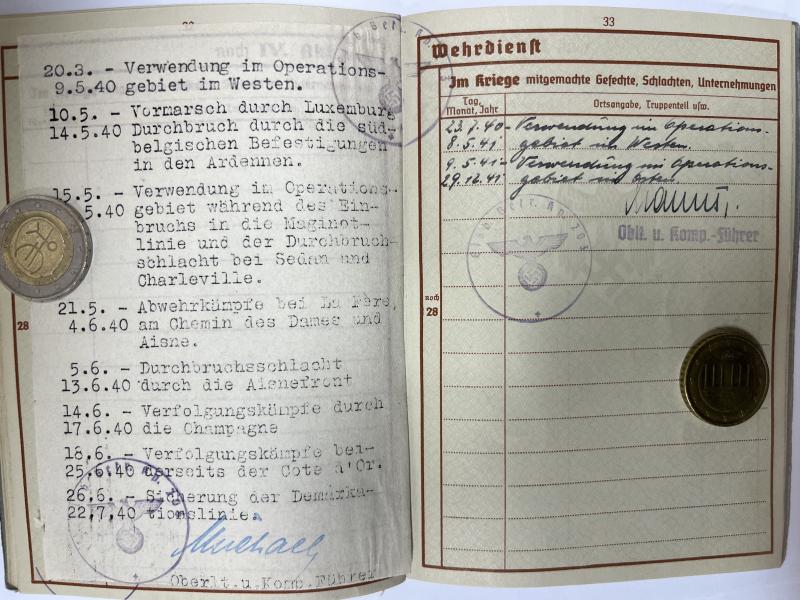 20.3. - Verwendung im Operations-
9.5.40 gebiet im Westen.
10.5. - Vormarsch durch Luxemburg
14.5.40 Durchbruch durch die süd-
belgischen Befestigungen
in den Ardennen.
15.5. - Verwendung im Operations-
5.40 gebiet während des Ein-
bruchs in die Maginot-
linie und der Durchbruch-
schlacht bei Sedan und
Charleville.
21.5. - Abwehrkämpfe bei La Fère,
28
4.6.40 am Chemin des Dames und
Aisne.
5.6. - Durchbruchsschlacht
13.6.40 durch die Aisnefront
14.6. - Verfolgungskämpfe durch
17.6.40 die Champagne
18.6. - Verfolgungskämpfe bei-
25.6.40 derseits der Cote d'Or.
26.6. - Sicherung der Demarka-
22.7.40 tionslinie.
Oberlt.u.Komp.Führer
33
Wehrdienst
Im Kriege mitgemachte Gefechte, Schlachten, Unternehmungen
Tag, Monat, Jahr
Ortsangabe, Truppenteil usw.
23.7.40- Verwendung im Operations-
8.5.41 gebiet im Westen.
9.5.41- Verwendung im Operations-
29.12.41 gebiet im Osten.
Oblt. u. Komp.-Führer
noch
28